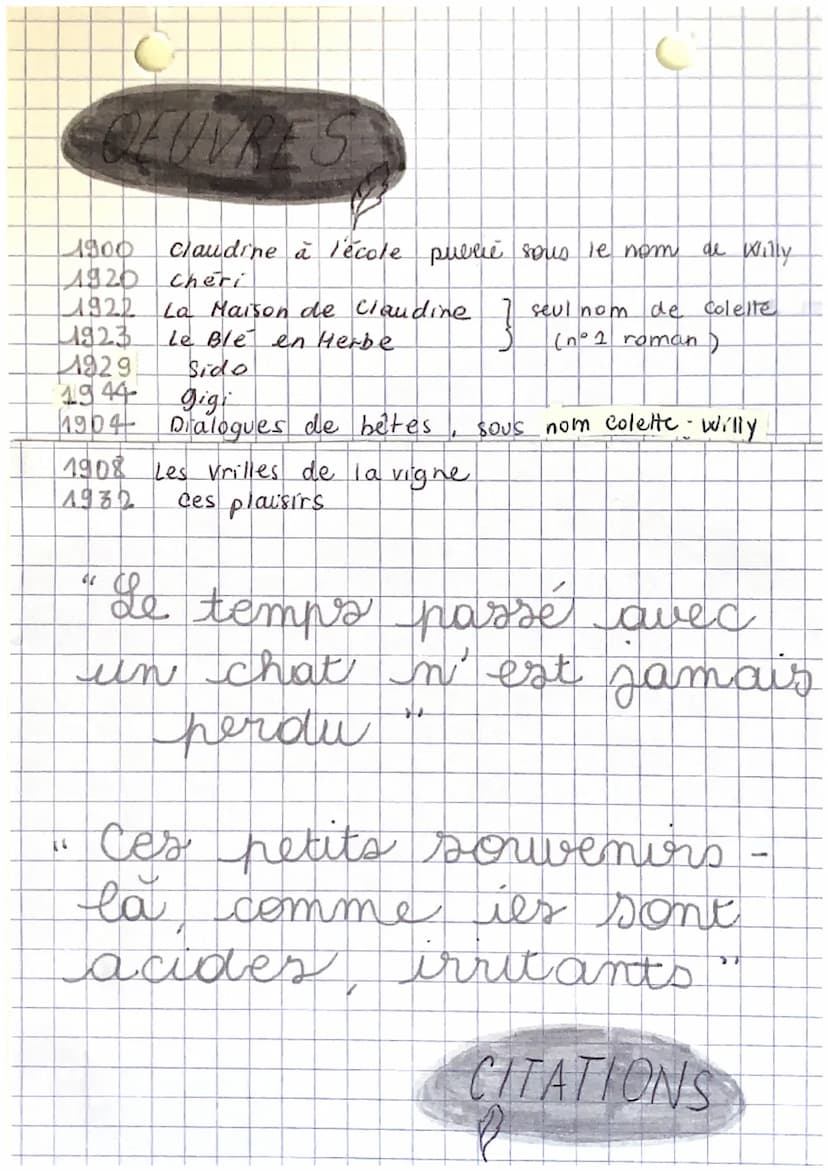 OEUVRES
1900 Claudine à l'école publié sous le nom de Willy
1920 Chéri
1922 La Maison de Claudine } seul nom de Colette
1923 Le Blé en Herbe (n°1 roman)
1929 Sido
1944 Gigi
1904 Dialogues de bêtes, sous nom Colette-Willy
1908 Les vrilles de la vigne
1932 Ces plaisirs
"Le temps passé avec
un chat n'est jamais
perdu"
"Ces petits souvenirs-
là, comme ils sont
acides, irritants"
CITATIONS